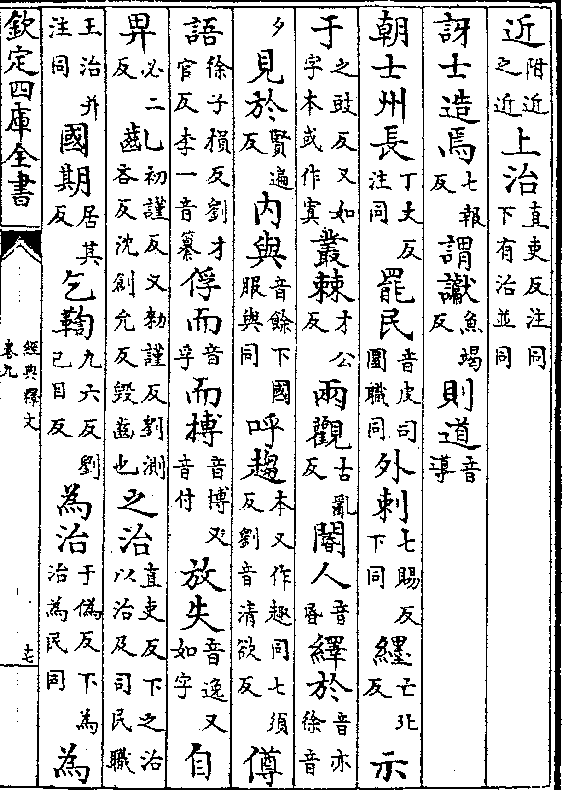 近附近之近上治直吏反注同下有治並同
訝士造焉七報反謂讞魚竭反則道音導
朝士州長丁丈反注同罷民音皮司圜職同外刺七賜反下同纆亡北反示
于之豉反又如字本或作寘叢棘才公反兩觀古亂反閽人音昏繹於音亦徐音
夕見於賢遍反內與音餘下國服與同呼趨本又作趣同七須反劉音清欲反僔
語徐子損反劉才官反李一音纂俘而音孚而搏音博又音付放失音逸又如字自
畀必二反齔初謹反又勑謹反劉測吝反沈創允反毀齒也之治直吏反下之治以治及司民職
王治并注同國期居其反乞鞫九六反劉己目反為治于偽反下為治為民同為
欽定四庫全書
經典釋文
卷九
十七